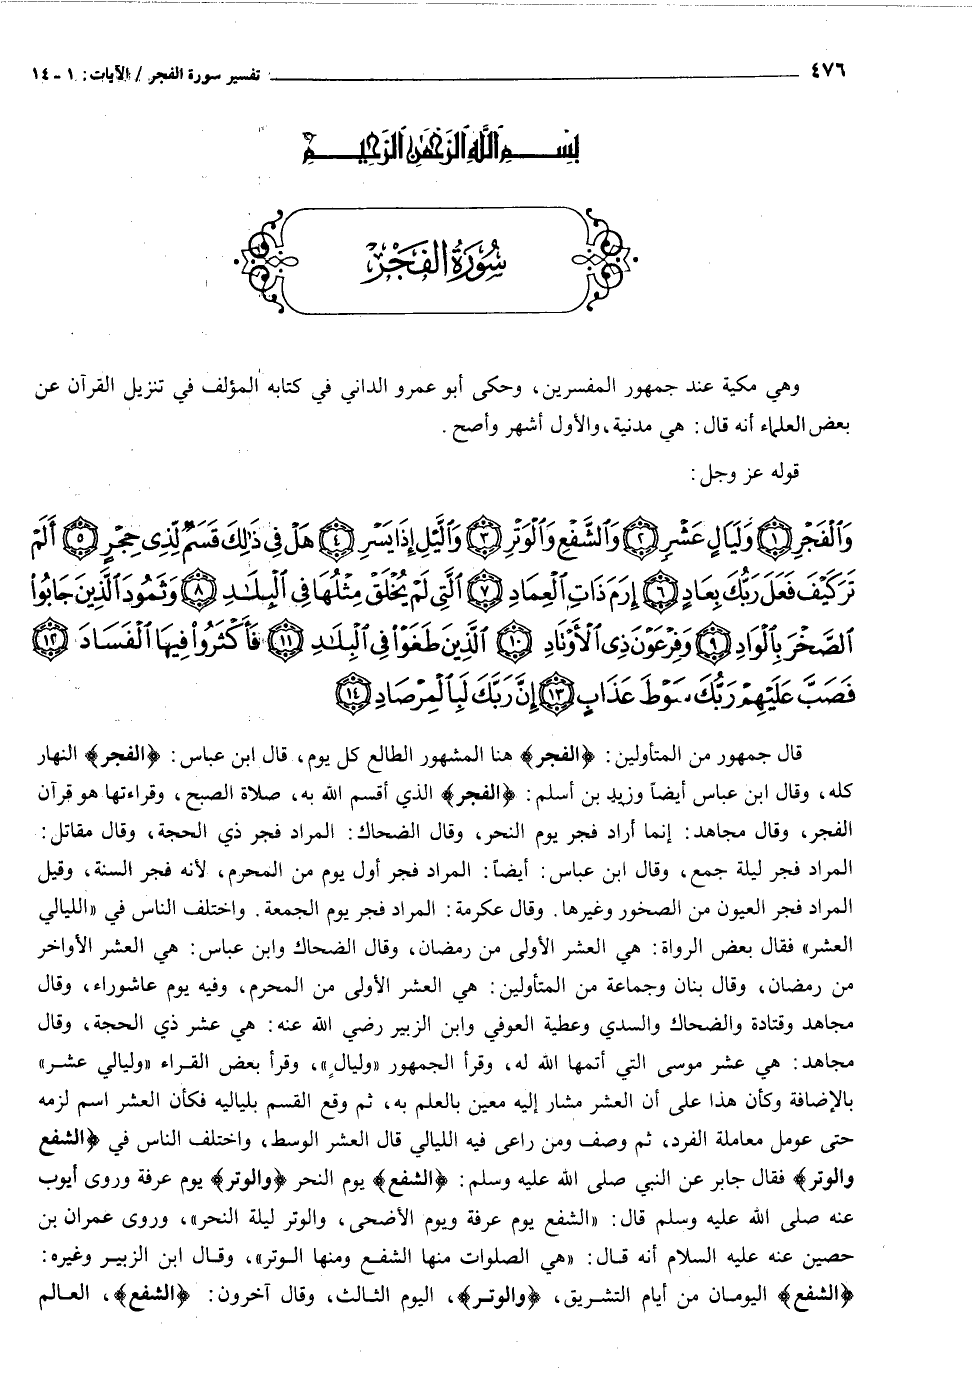 ٤٧٦ تفسير سورة الفجر / الآيات: ١ - ١٤
بسم الله الرحمن الرحيم
سُورَةُ الفَجْرِ
وهي مكية عند جمهور المفسرين، وحكى أبو عمرو الداني في كتابه المؤلف في تنزيل القرآن عن
بعض العلماء أنه قال: هي مدنية، والأول أشهر وأصح.
قوله عز وجل:
وَٱلْفَجْرِ ﴿١﴾ وَلَيَالٍ عَشْرٍ ﴿٢﴾ وَٱلشَّفْعِ وَٱلْوَتْرِ ﴿٣﴾ وَٱلَّيْلِ إِذَا يَسْرِ ﴿٤﴾ هَلْ فِى ذَٰلِكَ قَسَمٌ لِّذِى حِجْرٍ ﴿٥﴾ أَلَمْ
تَرَ كَيْفَ فَعَلَ رَبُّكَ بِعَادٍ ﴿٦﴾ إِرَمَ ذَاتِ ٱلْعِمَادِ ﴿٧﴾ ٱلَّتِى لَمْ يُخْلَقْ مِثْلُهَا فِى ٱلْبِلَٰدِ ﴿٨﴾ وَثَمُودَ ٱلَّذِينَ جَابُوا۟
ٱلصَّخْرَ بِٱلْوَادِ ﴿٩﴾ وَفِرْعَوْنَ ذِى ٱلْأَوْتَادِ ﴿١٠﴾ ٱلَّذِينَ طَغَوْا۟ فِى ٱلْبِلَٰدِ ﴿١١﴾ فَأَكْثَرُوا۟ فِيهَا ٱلْفَسَادَ ﴿١٢﴾
فَصَبَّ عَلَيْهِمْ رَبُّكَ سَوْطَ عَذَابٍ ﴿١٣﴾ إِنَّ رَبَّكَ لَبِٱلْمِرْصَادِ ﴿١٤﴾
قال جمهور من المتأولين: ﴿الفجر﴾ هنا المشهور الطالع كل يوم، قال ابن عباس: ﴿الفجر﴾ النهار
كله، وقال ابن عباس أيضاً وزيد بن أسلم: ﴿الفجر﴾ الذي أقسم الله به، صلاة الصبح، وقراءتها هو قرآن
الفجر، وقال مجاهد: إنما أراد فجر يوم النحر، وقال الضحاك: المراد فجر ذي الحجة، وقال مقاتل:
المراد فجر ليلة جمع، وقال ابن عباس: أيضاً: المراد فجر أول يوم من المحرم، لأنه فجر السنة، وقيل
المراد فجر العيون من الصخور وغيرها. وقال عكرمة: المراد فجر يوم الجمعة. واختلف الناس في «الليالي
العشر» فقال بعض الرواة: هي العشر الأولى من رمضان، وقال الضحاك وابن عباس: هي العشر الأواخر
من رمضان، وقال بنان وجماعة من المتأولين: هي العشر الأولى من المحرم، وفيه يوم عاشوراء، وقال
مجاهد وقتادة والضحاك والسدي وعطية العوفي وابن الزبير رضي الله عنه: هي عشر ذي الحجة، وقال
مجاهد: هي عشر موسى التي أتمها الله له، وقرأ الجمهور «وليالٍ»، وقرأ بعض القراء «وليالي عشر»
بالإضافة وكأن هذا على أن العشر مشار إليه معين بالعلم به، ثم وقع القسم بلياليه فكأن العشر اسم لزمه
حتى عومل معاملة الفرد، ثم وصف ومن راعى فيه الليالي قال العشر الوسط، واختلف الناس في ﴿الشفع
والوتر﴾ فقال جابر عن النبي صلى الله عليه وسلم: ﴿الشفع﴾ يوم النحر ﴿والوتر﴾ يوم عرفة وروى أيوب
عنه صلى الله عليه وسلم قال: «الشفع يوم عرفة ويوم الأضحى، والوتر ليلة النحر»، وروى عمران بن
حصين عنه عليه السلام أنه قال: «هي الصلوات منها الشفع ومنها الوتر»، وقال ابن الزبير وغيره:
﴿الشفع﴾ اليومان من أيام التشريق، ﴿والوتر﴾، اليوم الثالث، وقال آخرون: ﴿الشفع﴾، العالم